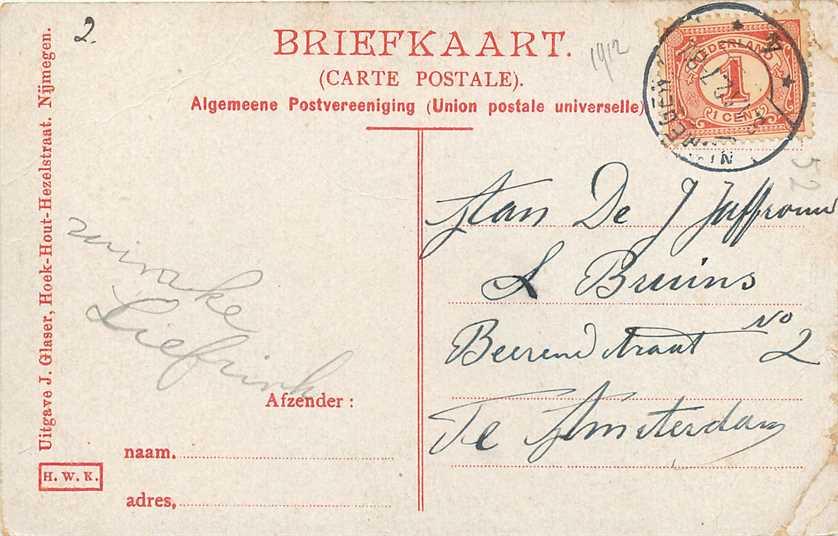 2.
BRIEFKAART.
(CARTE POSTALE).
Algemeene Postvereeniging (Union postale universelle)
1912
NEDERLAND
1
1 CENT
32
Aan De J Juffrouw
A Bruins
Beerenstraat No 2
Te Amsterdam
Liefrink
Afzender :
naam.
adres,
Uitgave J. Glaser, Hoek-Hout-Hezelstraat. Nijmegen.
H. W. K.